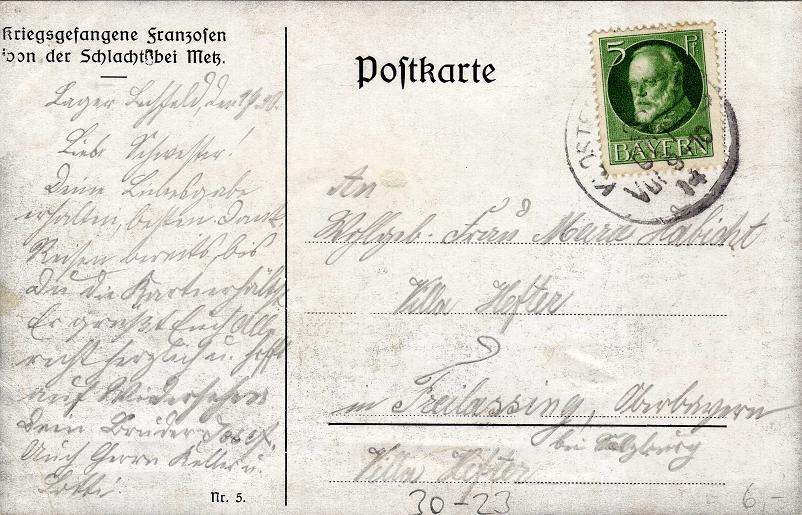 Kriegsgefangene Franzosen
von der Schlacht bei Metz.
Lager Lechfeld, den
Liebe Schwester!
Deine Liebesgabe
erhalten, besten Dank,
Reisen bereits, bis
du die Karte erhältst
Er grüßt Euch Alle
recht herzlich u. hofft
auf Wiedersehen
Dein Bruder Josef.
Auch Herrn Keller u.
Nr. 5.
Postkarte
5 Pf
BAYERN
An
Wohlgeb. Frau Marie Habicht
Villa Hefter
in Freilassing, Oberbayern
bei Salzburg
Villa Hefter
30-23
6,-